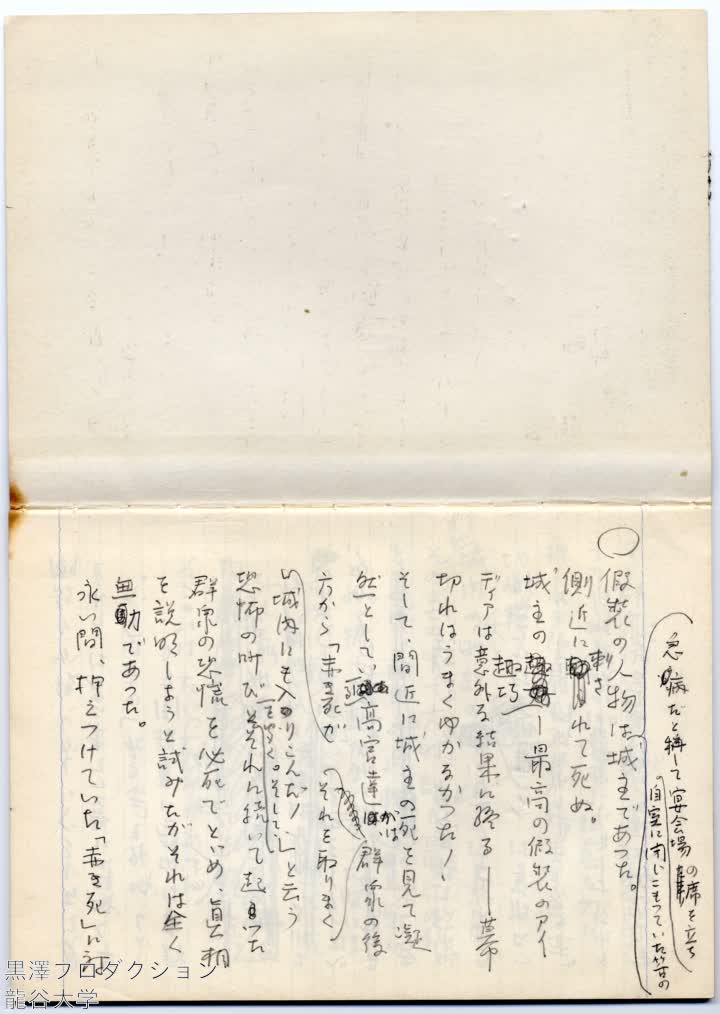 急病だと称して宴会場の席を立ち
自室に閉じこもっていた筈の
假装の人物は城主であった。
側近に刺されて死ぬ。
城主の趣巧ー最高の假装のアイ
ディアは意外な結果に終るー幕
切れはうまくゆかなかった！
そして、間近に城主の死を見て凝
然としている高官達がは、群衆の後
方から「赤き死が
それを取りまく
城内にも入りこんだ！」と云う
恐怖の叫びをきく。そして、それに続いて起った
群衆の恐慌を必死でとゞめ、真相
を説明しようと試みたがそれは全く
無動であった。
永い間、押えつけていた「赤き死」に
黒澤プロダクション
龍谷大学